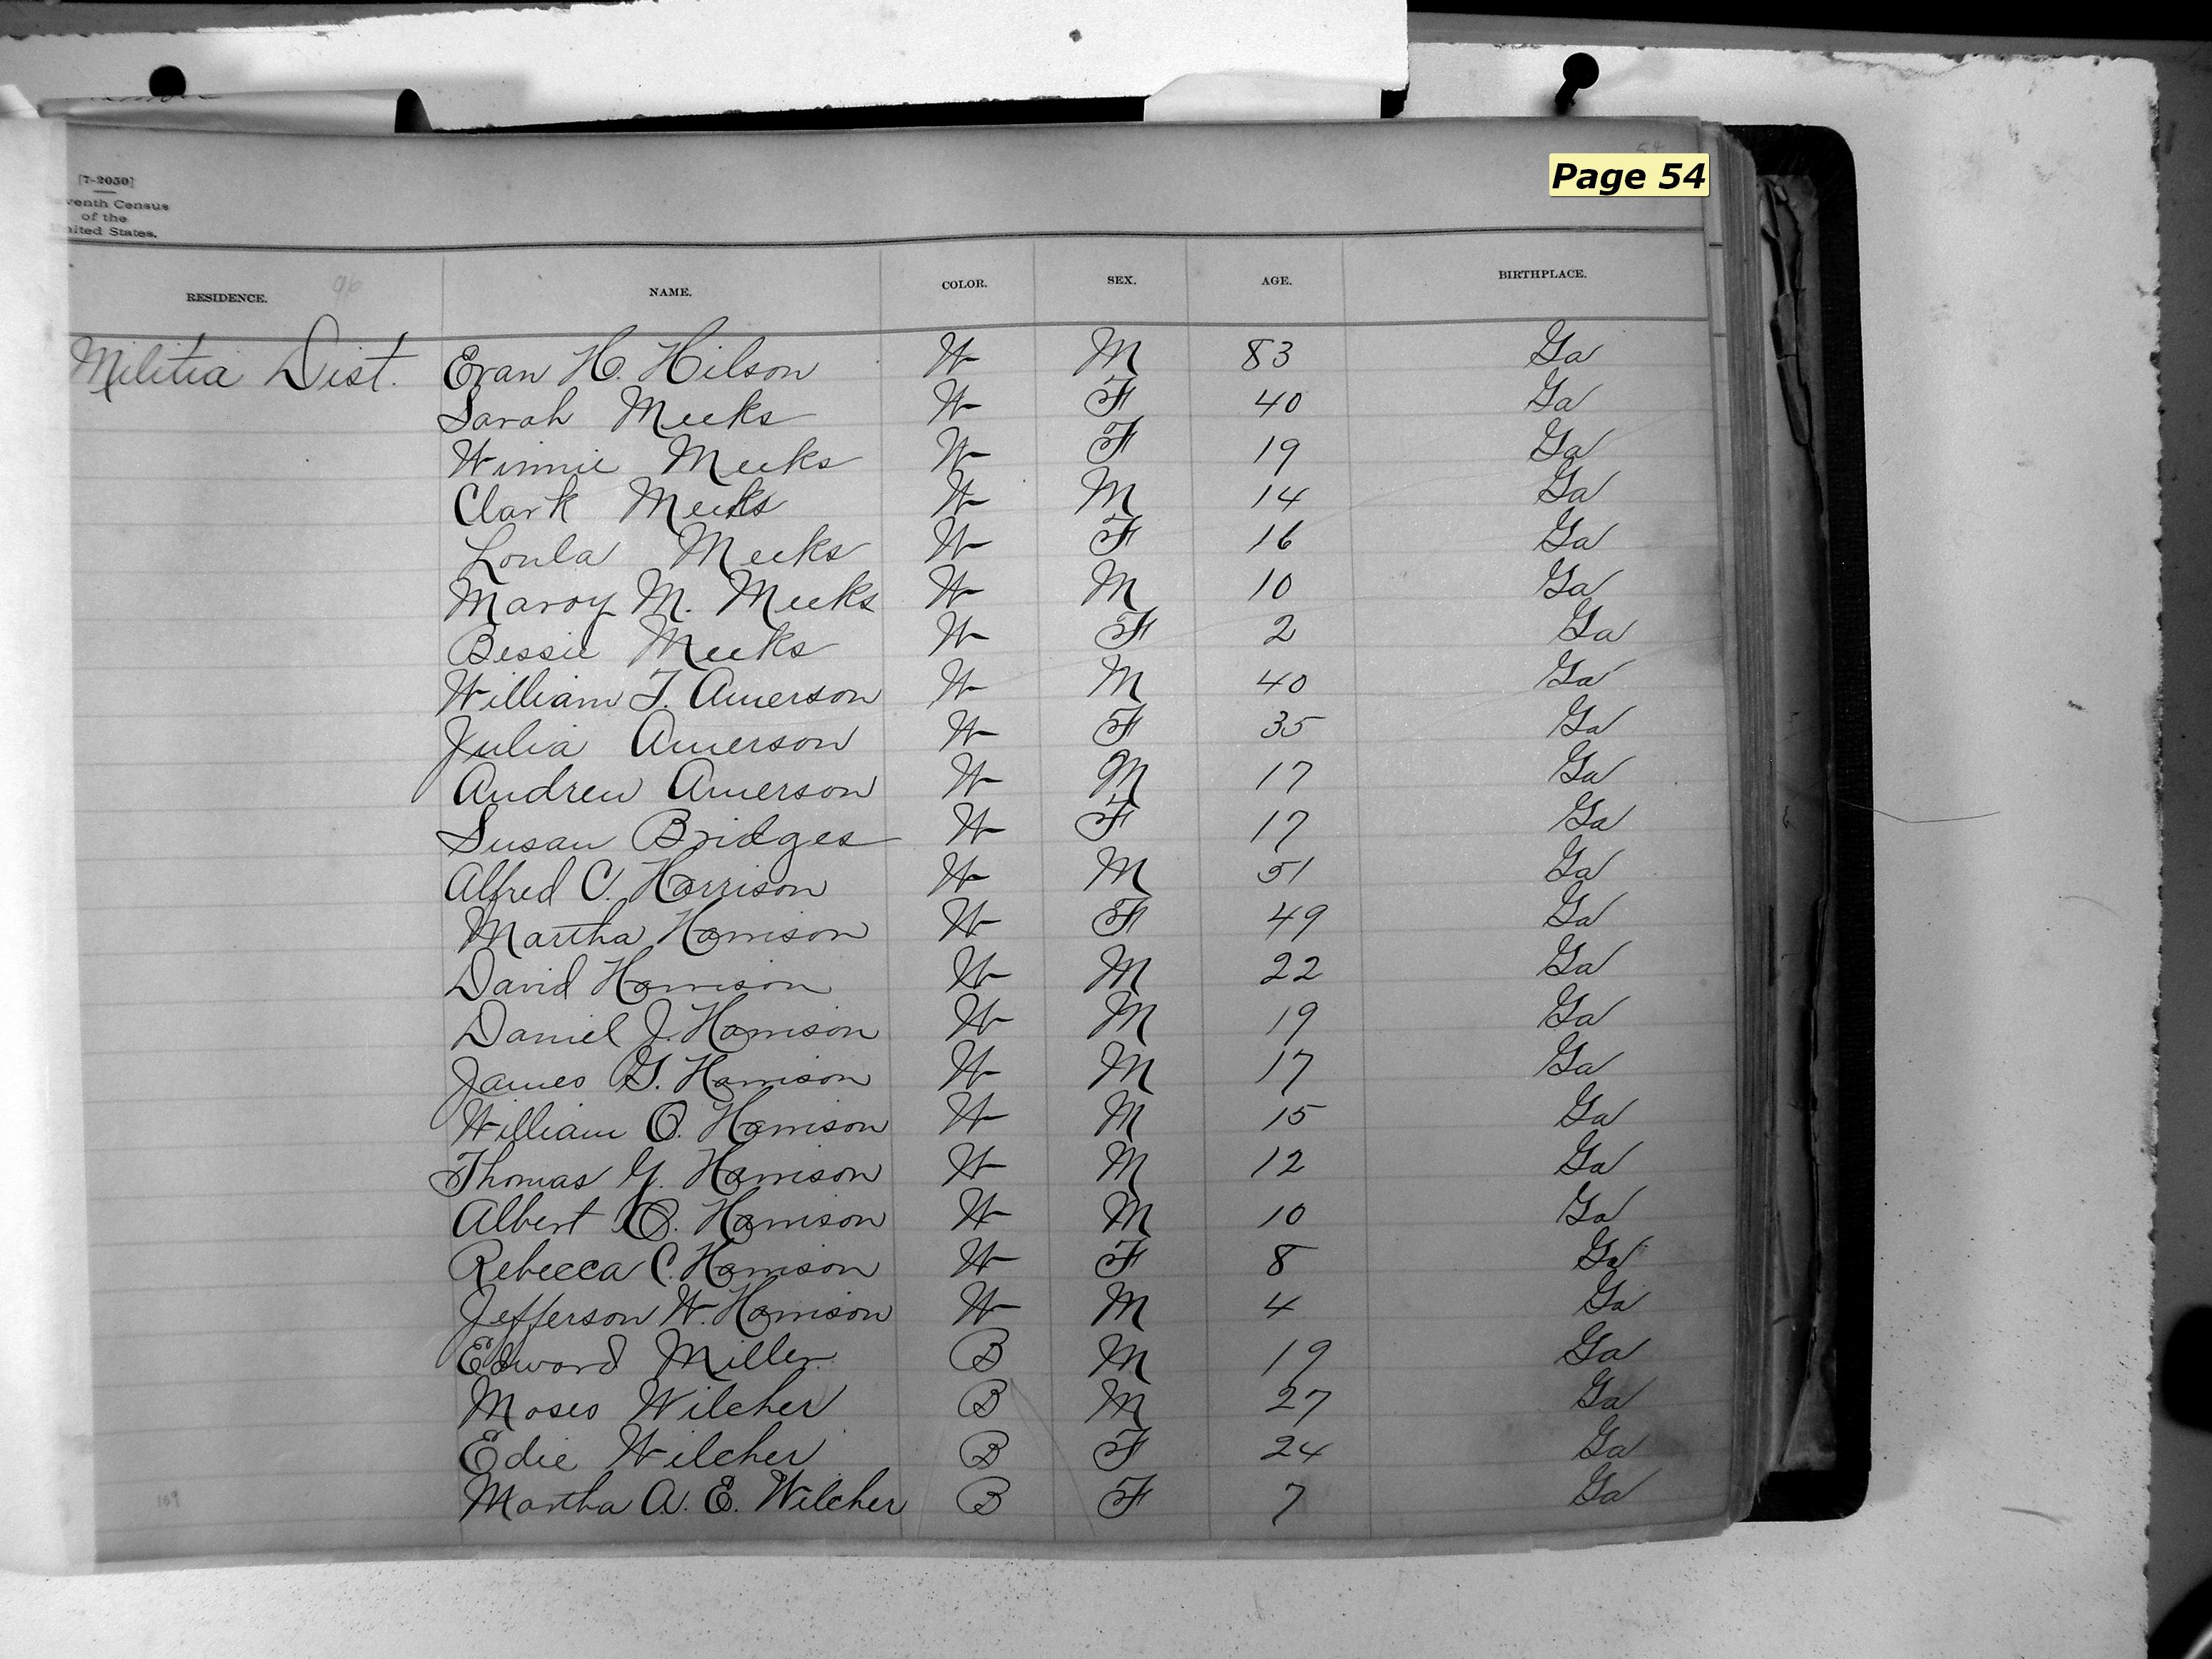 54
Page 54
[7-2050]
venth Census
of the
nited States.
RESIDENCE. 96 NAME. COLOR. SEX. AGE. BIRTHPLACE.
Militia Dist. Evan H. Hilson W M 83 Ga
Sarah Meeks W F 40 Ga
Winnie Meeks W F 19 Ga
Clark Meeks W M 14 Ga
Loula Meeks W F 16 Ga
Maroy M. Meeks W M 10 Ga
Bessie Meeks W F 2 Ga
William T. Amerson W M 40 Ga
Julia Amerson W F 35 Ga
Andrew Amerson W M 17 Ga
Susan Bridges W F 17 Ga
Alfred C. Harrison W M 51 Ga
Martha Harrison W F 49 Ga
David Harrison W M 22 Ga
Daniel J. Harrison W M 19 Ga
James G. Harrison W M 17 Ga
William O. Harrison W M 15 Ga
Thomas Y. Harrison W M 12 Ga
Albert O. Harrison W M 10 Ga
Rebecca C. Harrison W F 8 Ga
Jefferson W. Harrison W M 4 Ga
Edward Miller B M 19 Ga
Moses Wilcher B M 27 Ga
Edie Wilcher B F 24 Ga
Martha A. E. Wilcher B F 7 Ga